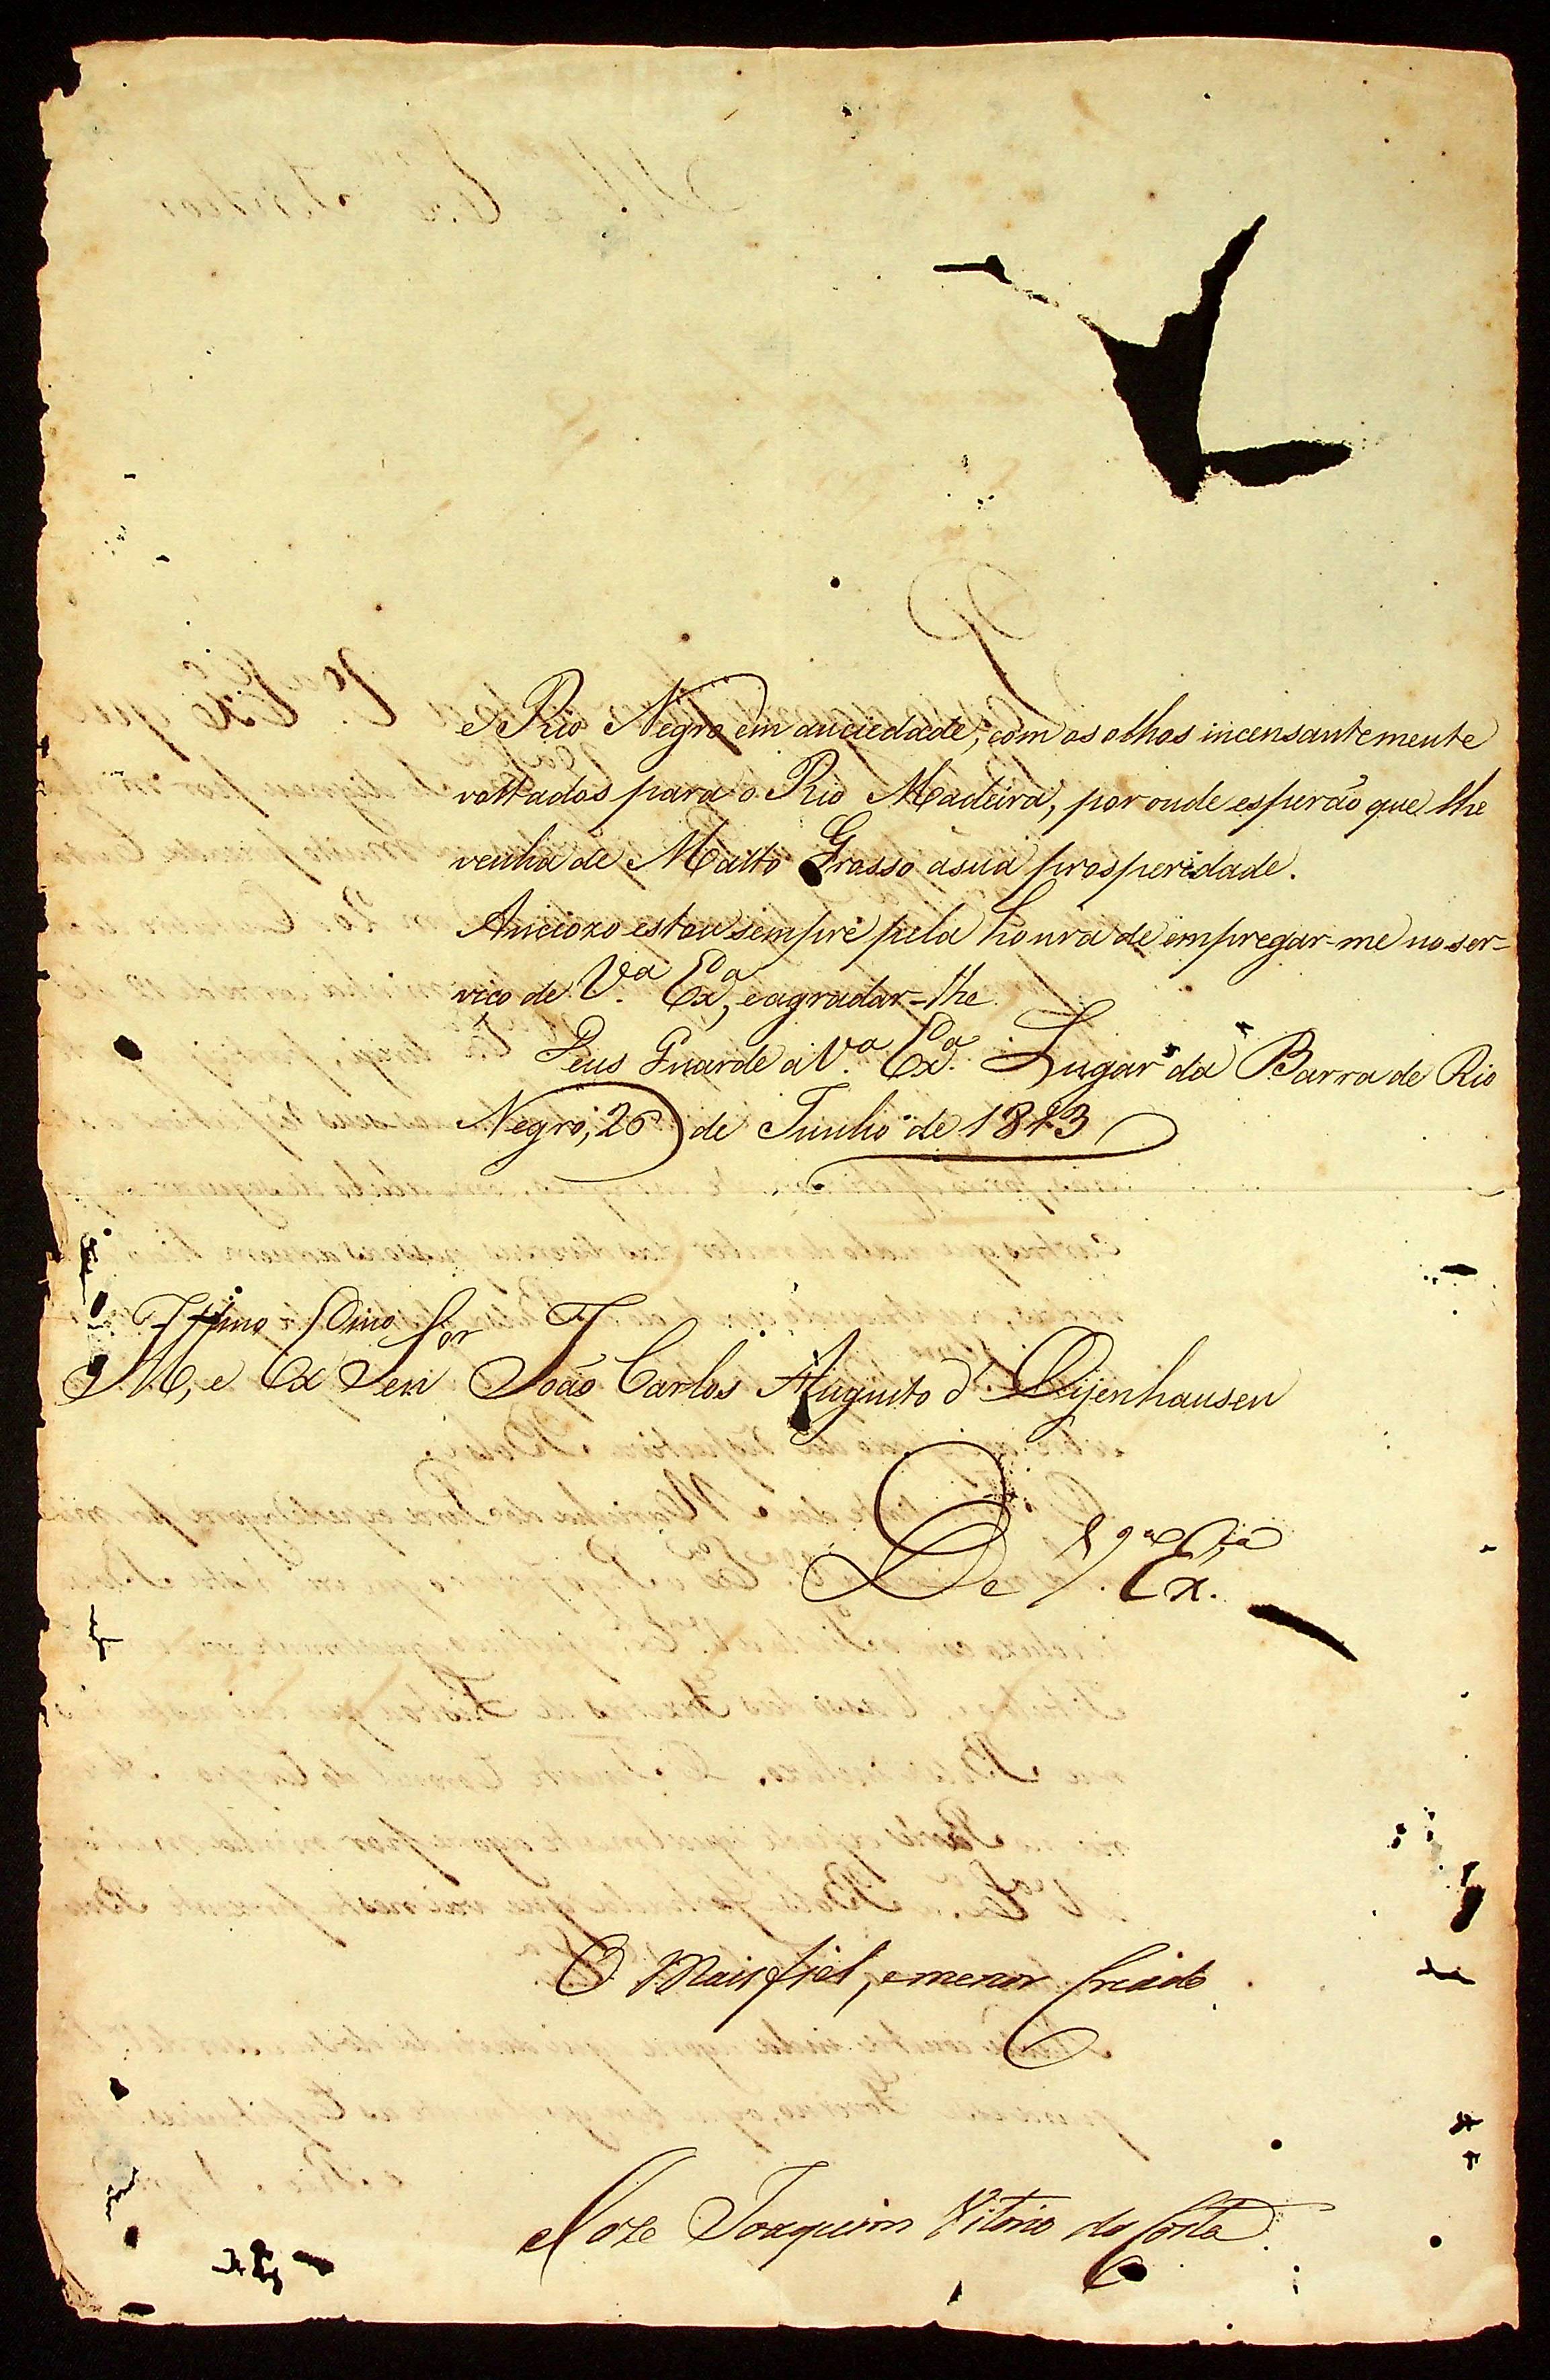 e Rio Negro em anciedade, com os olhos incensantemente
voltados para o Rio Madeira, por onde esperão que lhe
venha de Matto Grosso a sua prosperidade.
Ancioxo estou sempre pela honra de empregar-me no ser-
vico de V.ª Ex.ª, e agradar-lhe.
Deus Guarde a V.ª Ex.ª Lugar da Barra de Rio
Negro, 26 de Junho de 1813
Ill.mo e Ex.mo Sen.or João Carlos Augusto d'Oijenhausen
De V.ª Ex.ª
O Mais fiel, e menor Criado
Joze Joaquim Vitorio da Costa